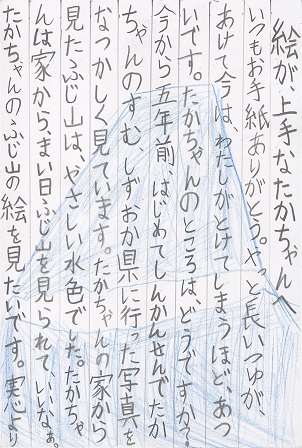 絵が、上手なたかちゃんへ
いつもお手紙ありがとう。やっと長いつゆが、
あけて今は、わたしがとけてしまうほど、あつ
いです。たかちゃんのところは、どうですか？
今から五年前、はじめてしんかんせんでたか
ちゃんのすむ、しずおか県に行った写真を
なつかしく見ています。たかちゃんの家から
見たふじ山は、やさしい水色でした。たかちゃ
んは家から、まい日ふじ山を見られて、いいなぁ。
たかちゃんのふじ山の絵を見たいです。実恵より